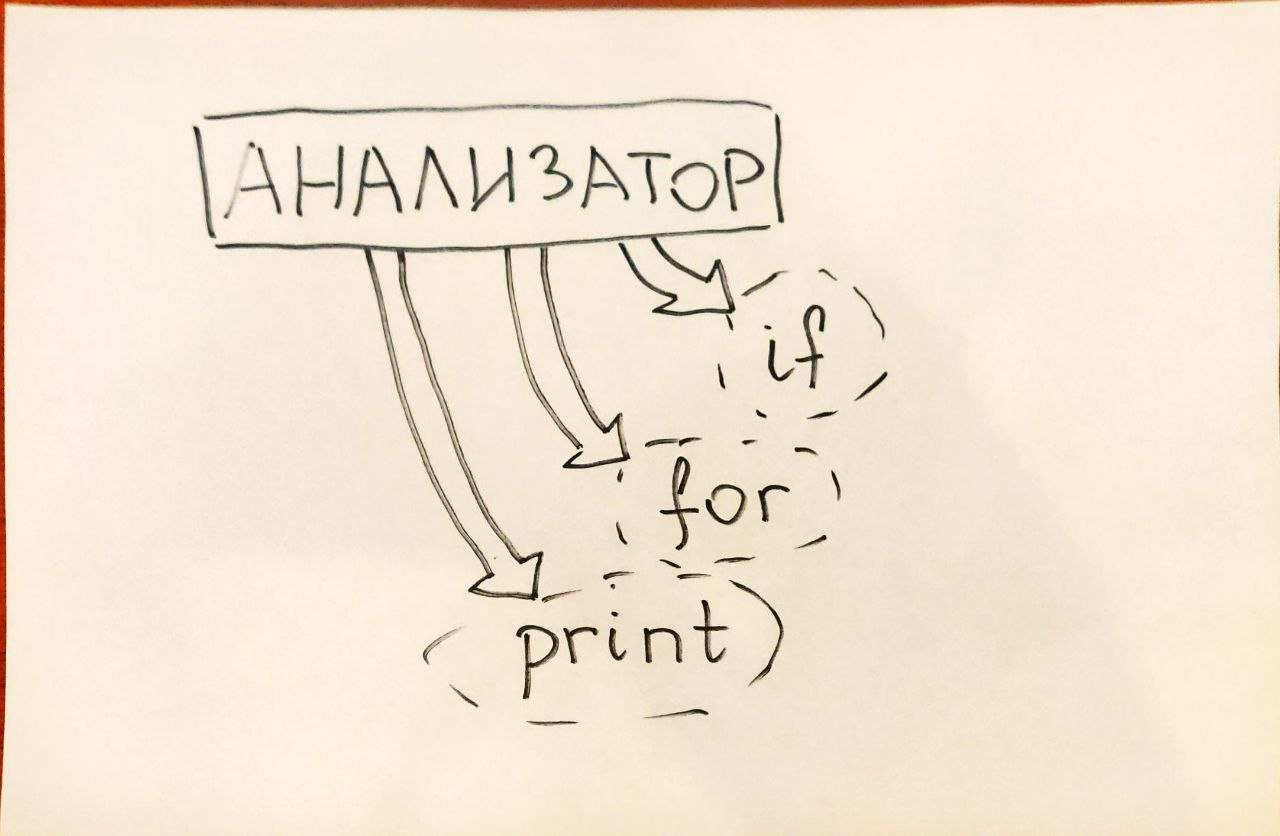 АНАЛИЗАТОР
if
for
print